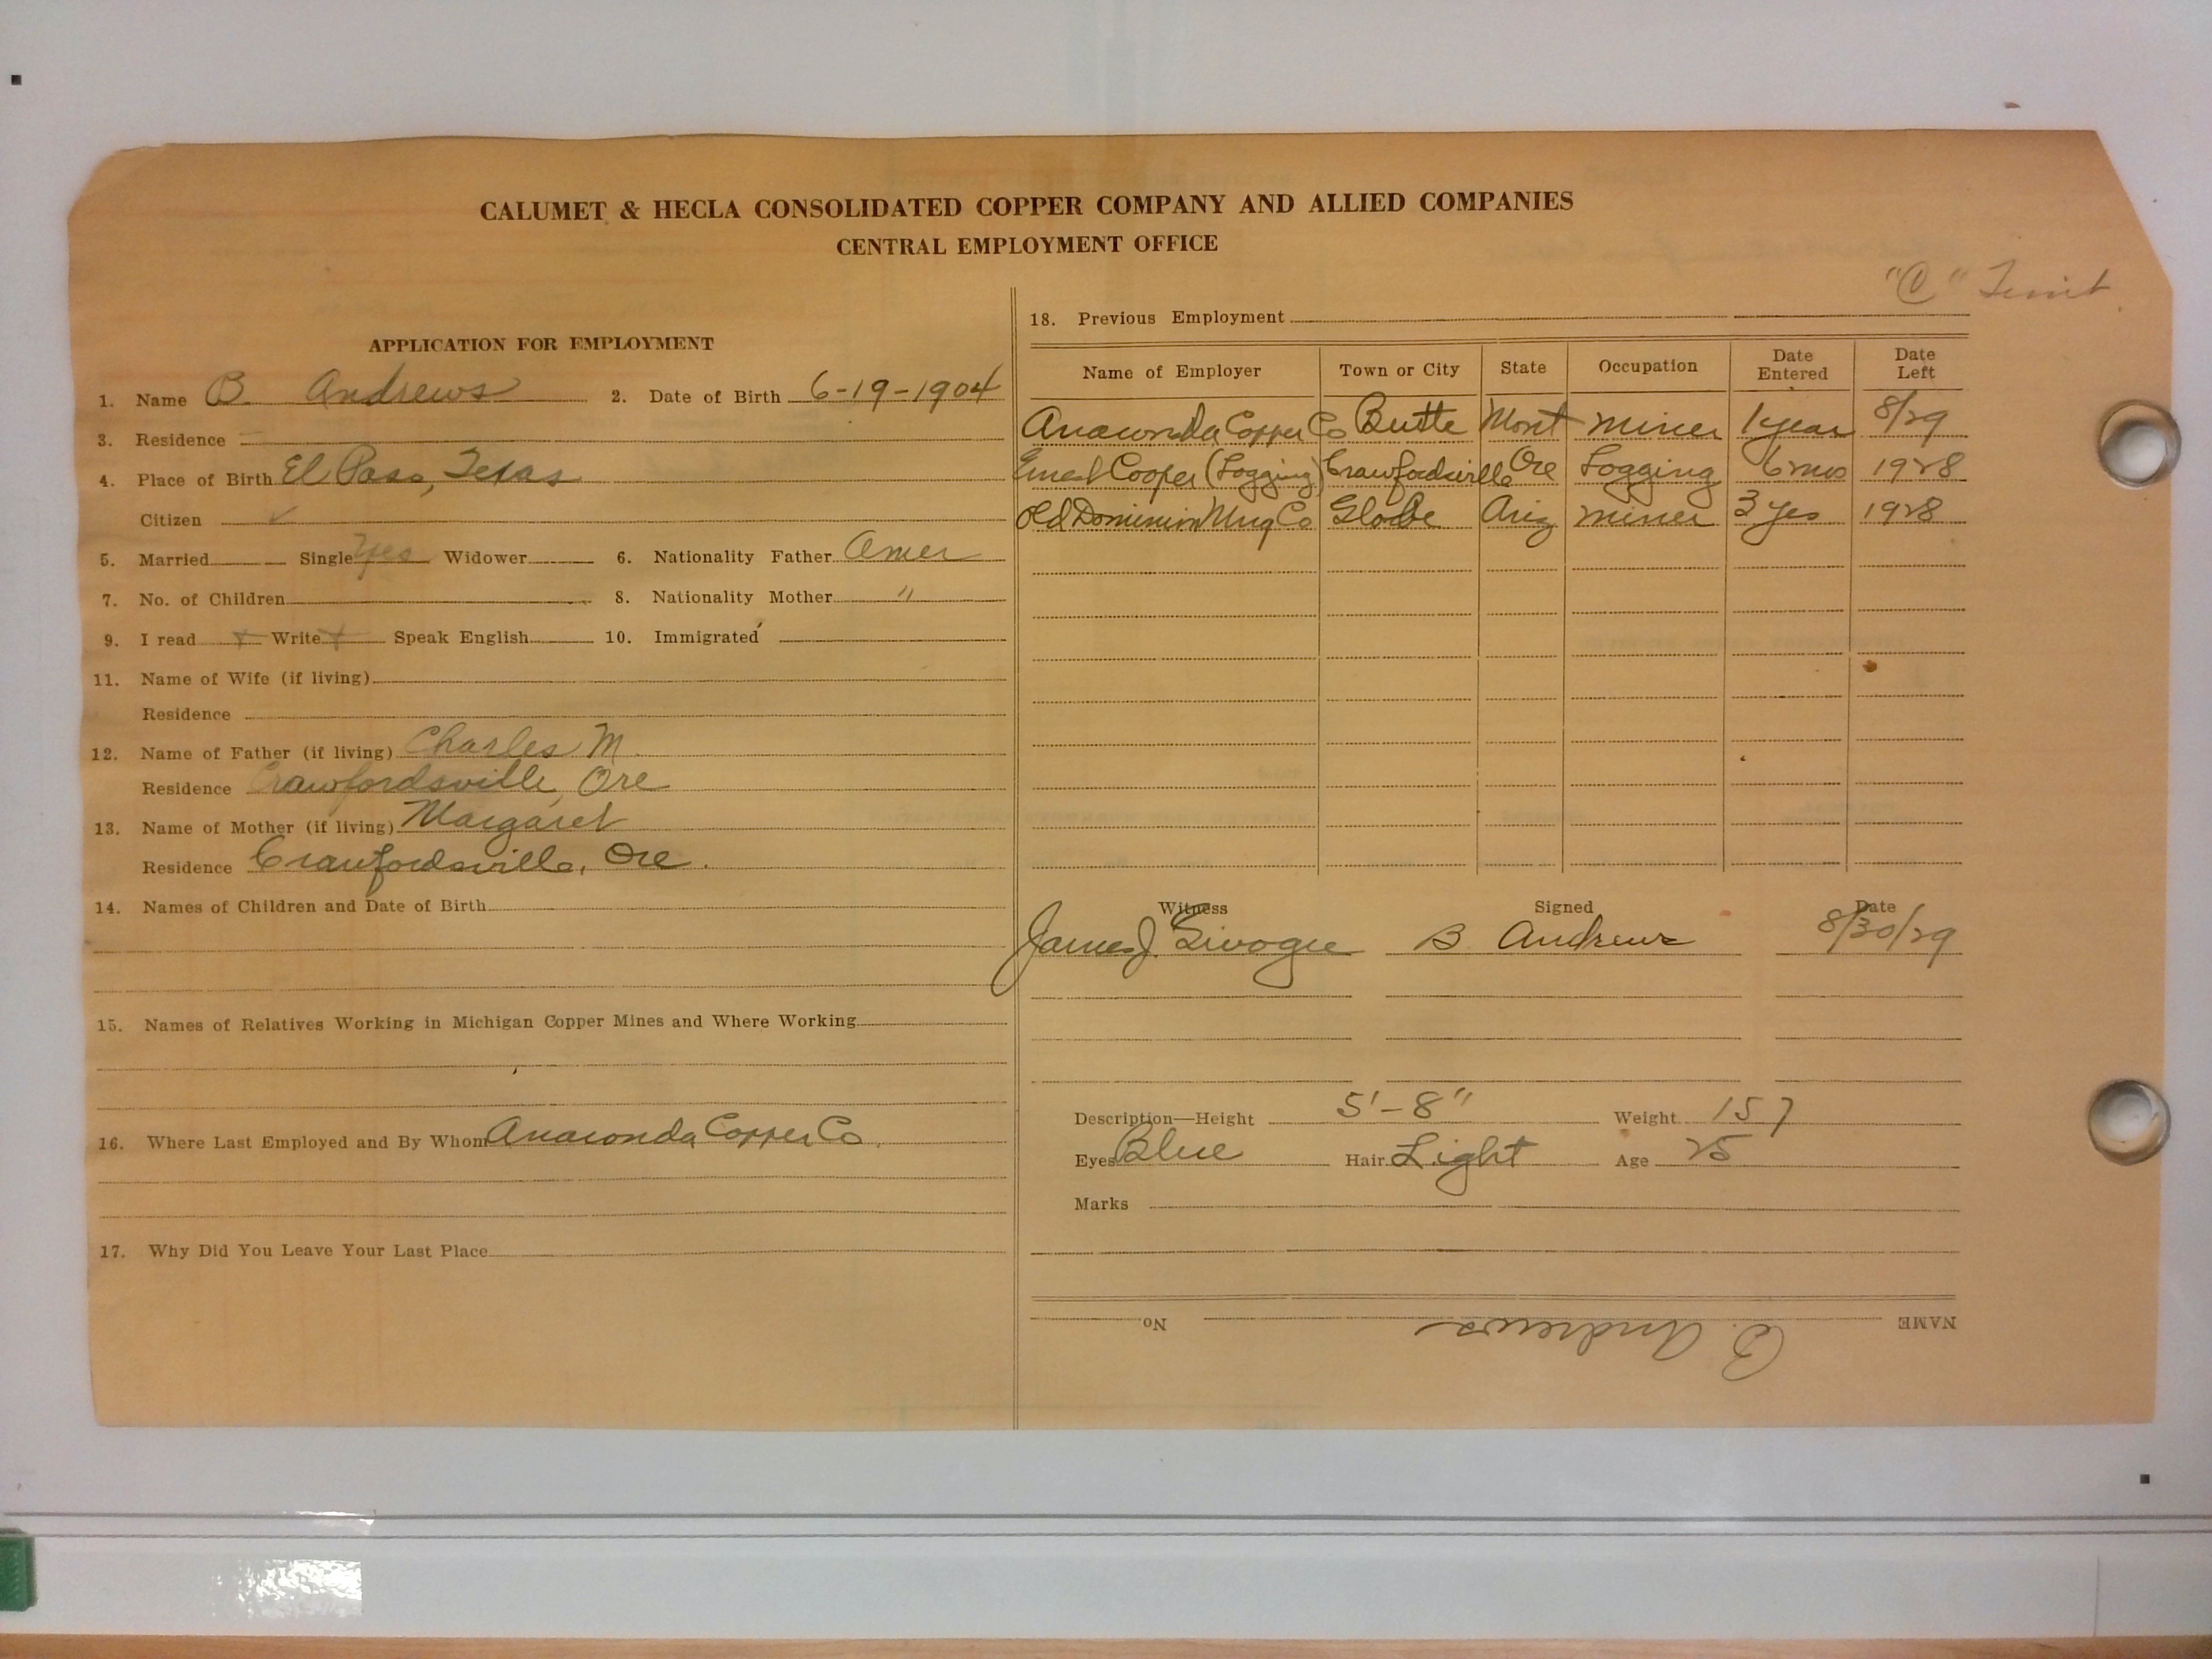 CALUMET & HECLA CONSOLIDATED COPPER COMPANY AND ALLIED COMPANIES
CENTRAL EMPLOYMENT OFFICE
APPLICATION FOR EMPLOYMENT
1. Name B. Andrews 2. Date of Birth 6-19-1904
3. Residence
4. Place of Birth El Paso, Texas
Citizen ✓
5. Married Single Yes Widower 6. Nationality Father Amer
7. No. of Children 8. Nationality Mother "
9. I read + Write + Speak English 10. Immigrated
11. Name of Wife (if living)
Residence
12. Name of Father (if living) Charles M.
Residence Crawfordsville, Ore
13. Name of Mother (if living) Margaret
Residence Crawfordsville, Ore.
14. Names of Children and Date of Birth
15. Names of Relatives Working in Michigan Copper Mines and Where Working
16. Where Last Employed and By Whom Anaconda Copper Co.
17. Why Did You Leave Your Last Place
"C"
18. Previous Employment
Name of Employer Town or City State Occupation Date Entered Date Left
Anaconda Copper Co Butte Mont Miner 1 year 8/29
Ernest Cooper (Logging) Crawfordsville Ore Logging 6 mos 1928
Old Dominion Mng Co Globe Ariz Miner 3 yes 1928
Witness Signed Date
James J. B Andrews 8/30/29
Description—Height 5'-8" Weight 157
Eyes Blue Hair Light Age 25
Marks
NAME B. Andrews No.